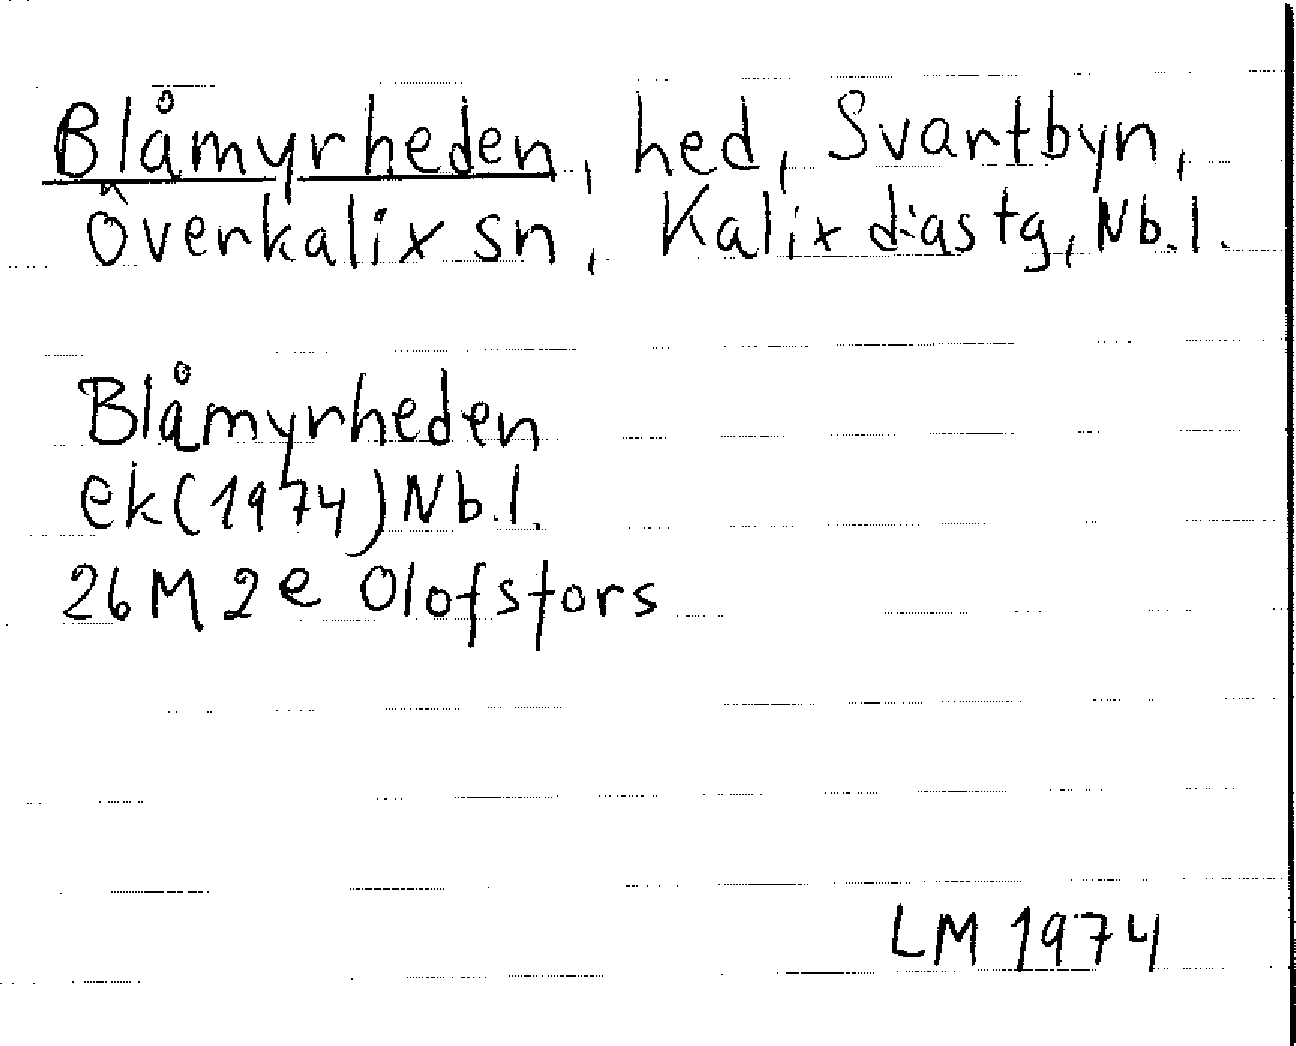 Blåmyrheden, hed, Svartbyn,
Överkalix sn, Kalix d:as tg, Nb.l.
Blåmyrheden
ek (1974) Nb.l.
26 M 2 e Olofsfors
LM 1974